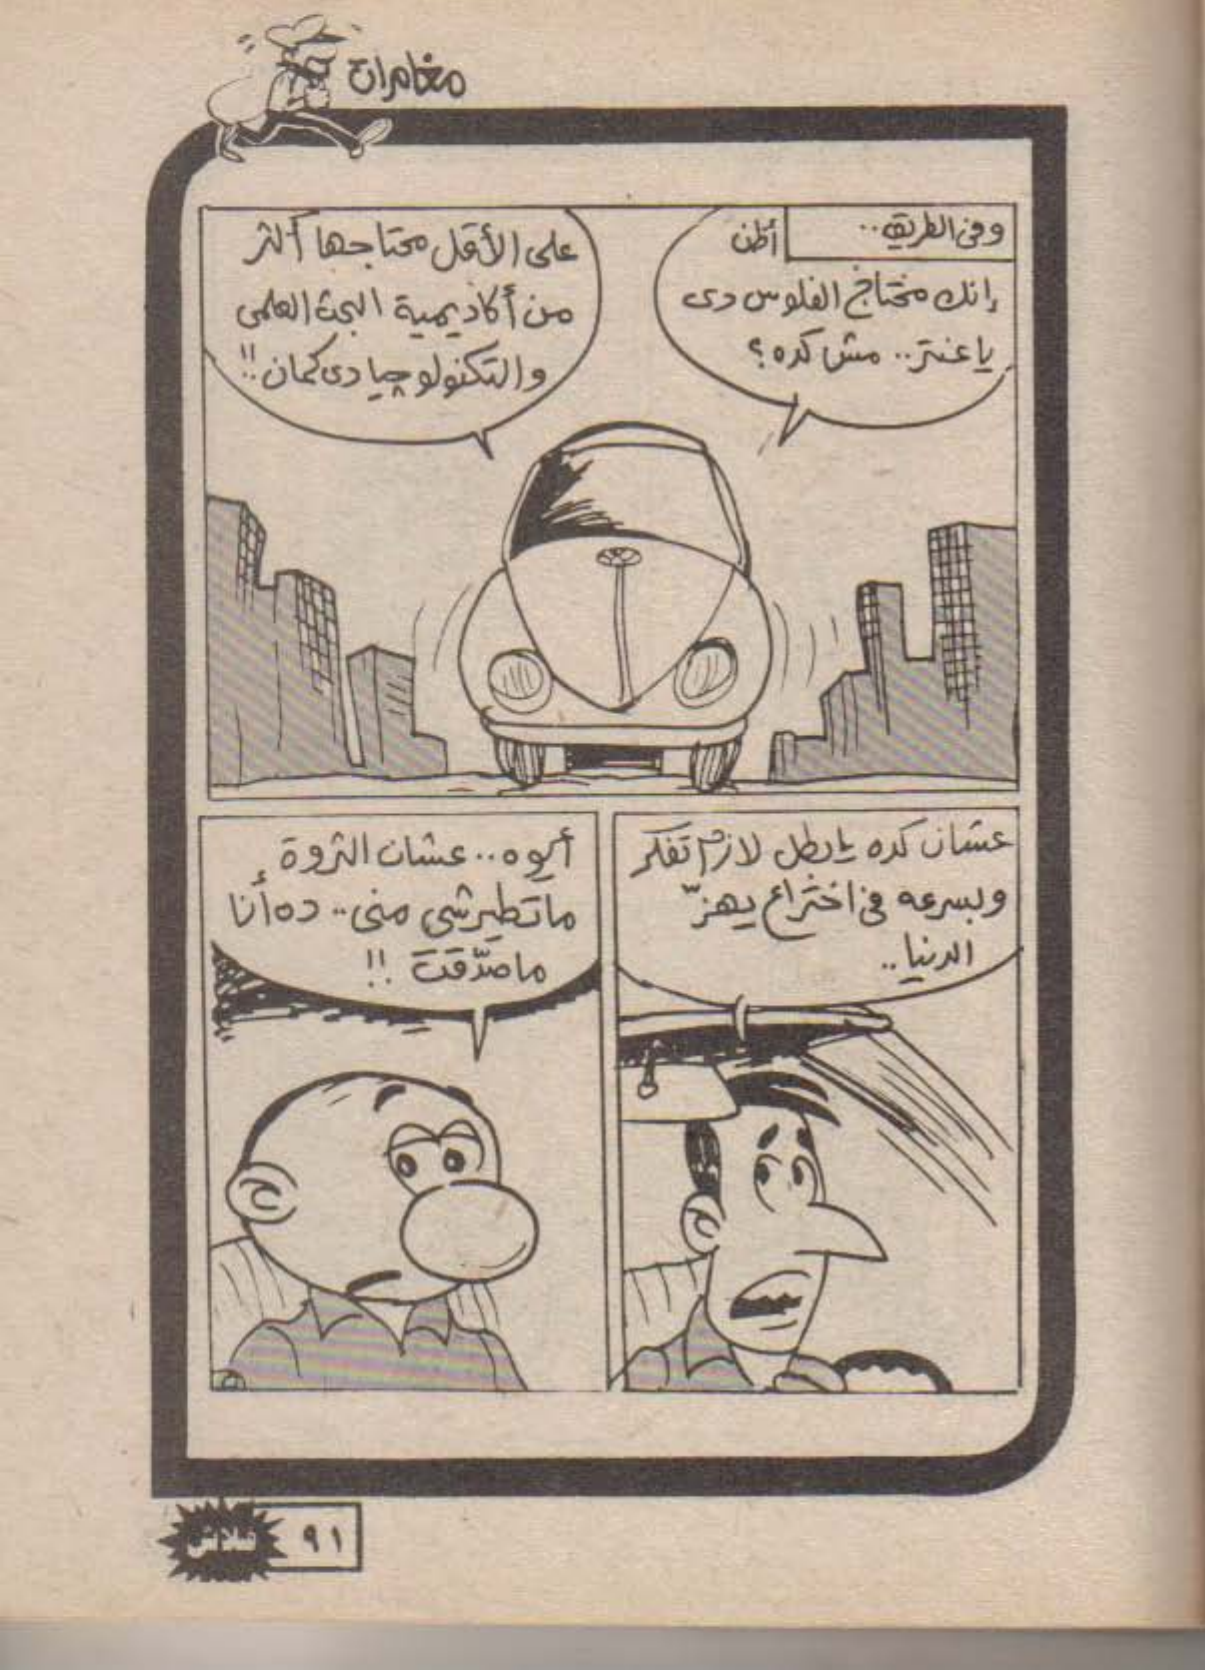 مغامرات
وفى الطريق..
أظن
إنك محتاج الفلوس دى
يا عنتر.. مش كده؟
على الأقل محتاجها أكتر
من أكاديمية البحث العلمى
والتكنولوچيا دى كمان!!
عشان كده يا بطل لازم تفكر
وبسرعه فى اختراع يهزّ
الدنيا..
أيوه.. عشان الثروة
ماتطيرشى منى.. ده أنا
ماصدّقت!!
٩١
فلاش